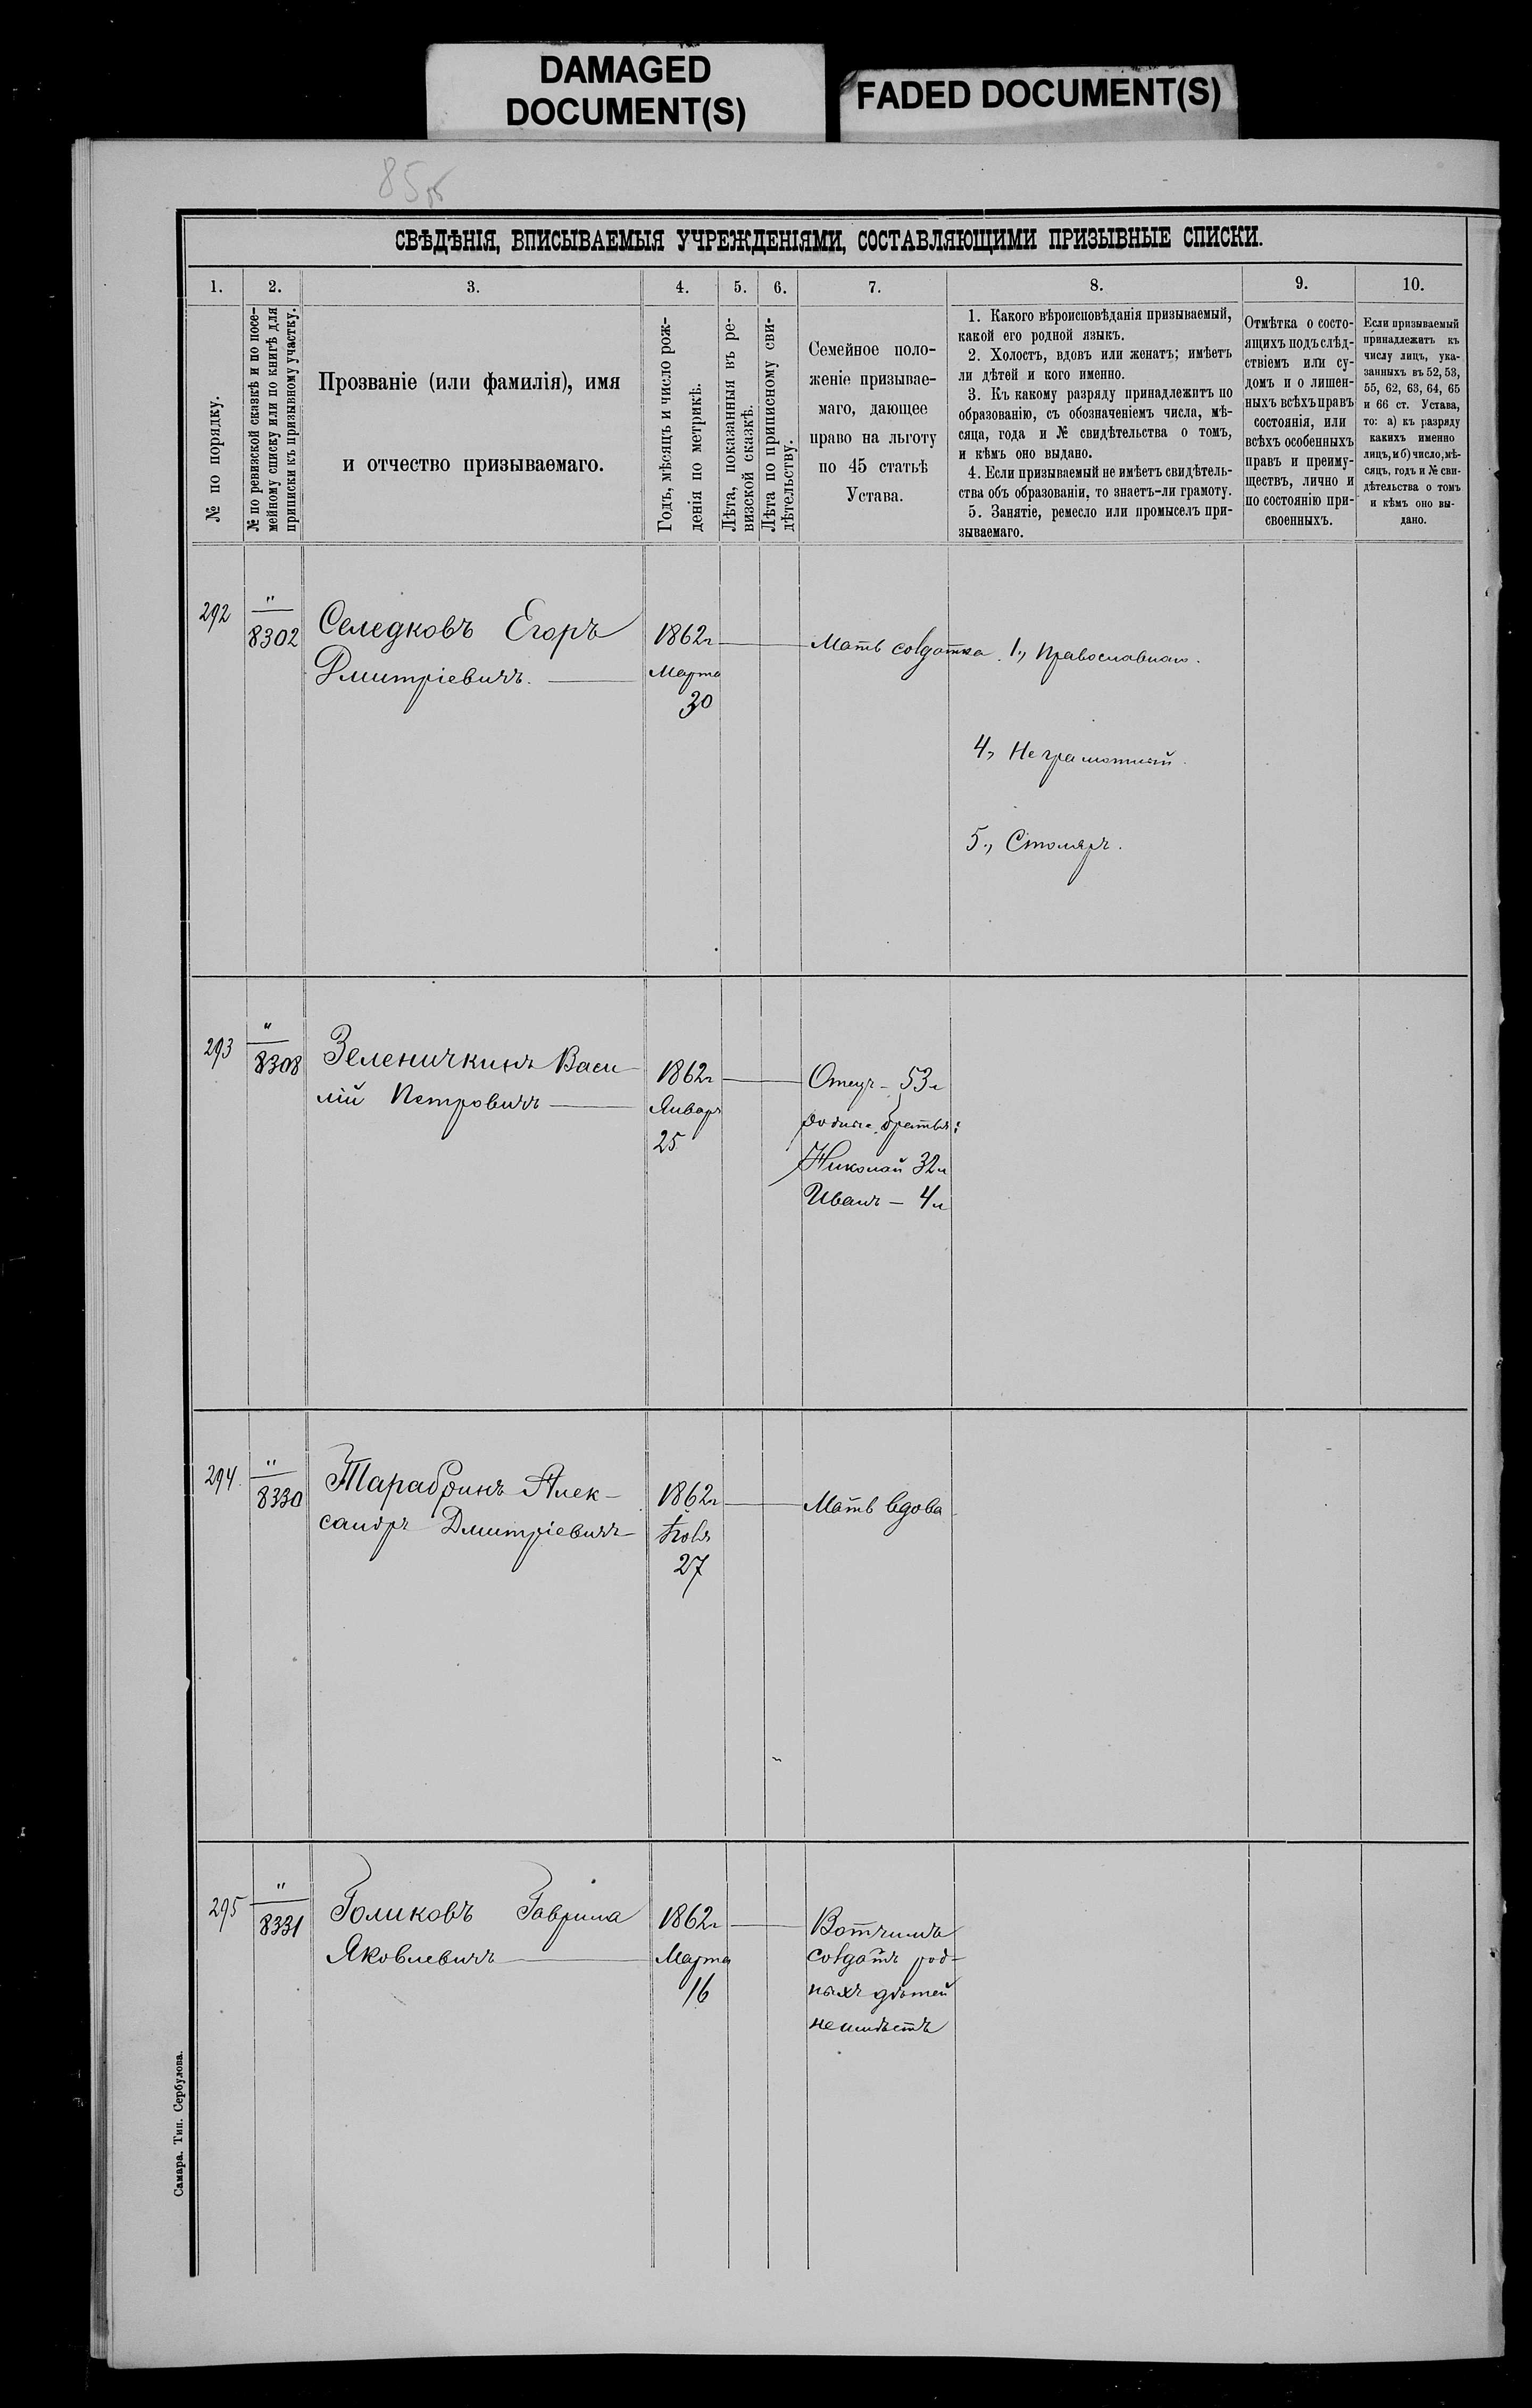 DAMAGED
DOCUMENT(S)
FADED DOCUMENT(S)
85об
СВѢДѢНІЯ, ВПИСЫВАЕМЫЯ УЧРЕЖДЕНІЯМИ, СОСТАВЛЯЮЩИМИ ПРИЗЫВНЫЕ СПИСКИ.
1.
2.
3.
4.
5.
6.
7.
8.
9.
10.
№ по порядку.
№ по ревизской сказкѣ и по посе-
мейному списку или по книгѣ для
приписки къ призывному участку.
Прозваніе (или фамилія), имя
и отчество призываемаго.
Годъ, мѣсяцъ и число рож-
денія по метрикѣ.
Лѣта, показанныя въ ре-
визской сказкѣ.
Лѣта по приписному сви-
дѣтельству.
Семейное поло-
женіе призывае-
маго, дающее
право на льготу
по 45 статьѣ
Устава.
1. Какого вѣроисповѣданія призываемый,
какой его родной языкъ.
2. Холостъ, вдовъ или женатъ; имѣетъ
ли дѣтей и кого именно.
3. Къ какому разряду принадлежитъ по
образованію, съ обозначеніемъ числа, мѣ-
сяца, года и № свидѣтельства о томъ,
и кѣмъ оно выдано.
4. Если призываемый не имѣетъ свидѣтель-
ства объ образованіи, то знаетъ-ли грамоту.
5. Занятіе, ремесло или промыселъ при-
зываемаго.
Отмѣтка о состо-
ящихъ подъ слѣд-
ствіемъ или су-
домъ и о лишен-
ныхъ всѣхъ правъ
состоянія, или
всѣхъ особенныхъ
правъ и преиму-
ществъ, лично и
по состоянію при-
своенныхъ.
Если призываемый
принадлежитъ къ
числу лицъ, ука-
занныхъ въ 52, 53,
55, 62, 63, 64, 65
и 66 ст. Устава,
то: а) къ разряду
какихъ именно
лицъ, и б) число, мѣ-
сяцъ, годъ и № сви-
дѣтельства о томъ
и кѣмъ оно вы-
дано.
292
"
8302
Селедковъ Егоръ
Дмитріевичъ.
1862г
Марта
30
Мать солдатка
1., Православнаго.
4, Неграмотный.
5., Столяръ.
293
"
8308
Зеленичкинъ Васи-
лій Петровичъ
1862г
Января
25
Отецъ - 53л
родные братья:
Николай 32л
Иванъ - 4л
294.
"
8330
Тарабринъ Алек-
сандръ Дмитріевичъ
1862г
27
Мать вдова
295
"
8331
Голиковъ Гаврила
Яковлевичъ
1862г
Марта
16
Вотчимъ
солдатъ род-
ныхъ дѣтей
неимѣетъ
Самара. Тип. Сербулова.